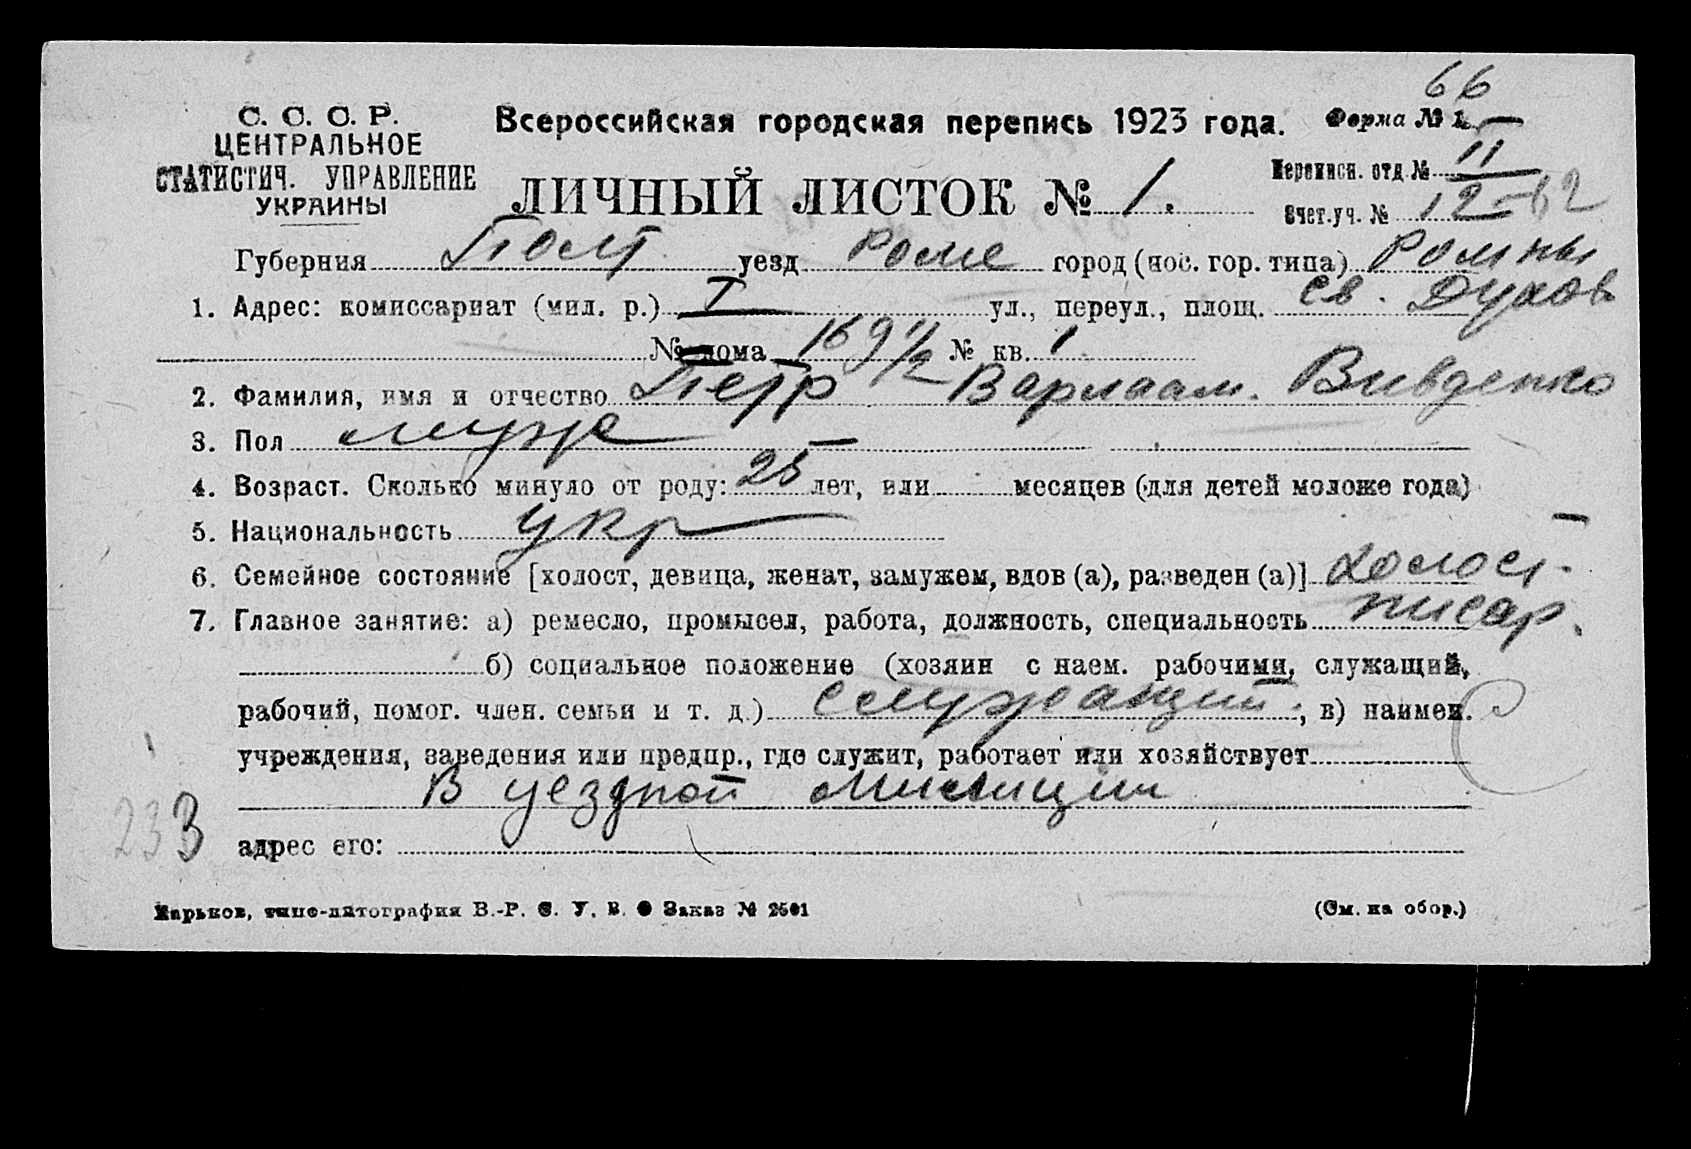 66
С. С. С. Р.
ЦЕНТРАЛЬНОЕ
СТАТИСТИЧ. УПРАВЛЕНИЕ
УКРАИНЫ
Всероссийская городская перепись 1923 года.
Форма № 1.
ЛИЧНЫЙ ЛИСТОК № 1.
Переписн. отд. № 11
Счет.уч. № 12-62
Губерния Полт уезд Роме город (пос. гор. типа) Ромны
1. Адрес: комиссариат (мил. р.) I ул., переул., площ. Св. Духов
№ дома 169 1/2 № кв. 1
2. Фамилия, имя и отчество Петр Варлаам. Вивденко
3. Пол муж
4. Возраст. Сколько минуло от роду: 25 лет, или месяцев (для детей моложе года)
5. Национальность укр
6. Семейное состояние [холост, девица, женат, замужем, вдов (а), разведен (а)] холост.
7. Главное занятие: а) ремесло, промысел, работа, должность, специальность писар.
б) социальное положение (хозяин с наем. рабочими, служащий,
рабочий, помог. член. семьи и т. д.) служащий., в) наимен.
учреждения, заведения или предпр., где служит, работает или хозяйствует
В уездной милиции
233
адрес его:
Харьков, типо-литография В.-Р. С. У. В. Заказ № 2501
(См. на обор.)